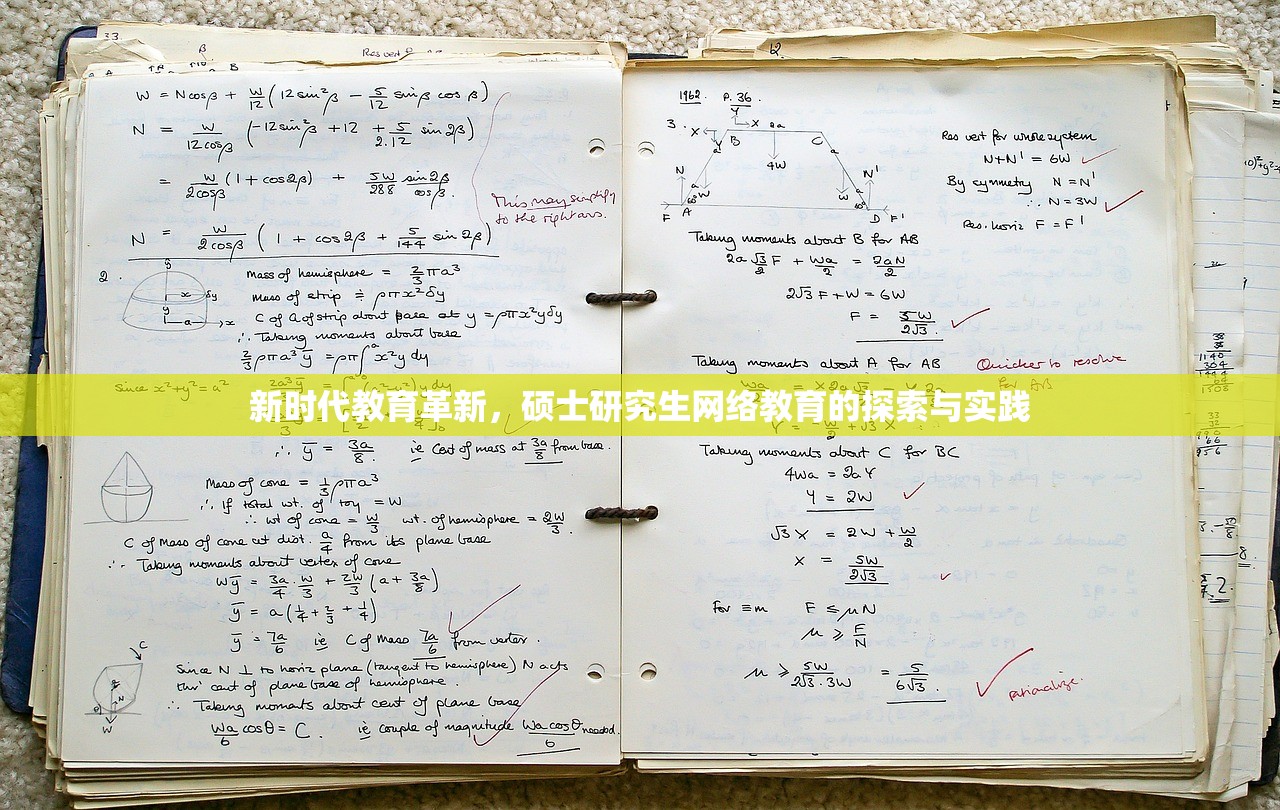 33.
β
Res vert
W = Ncosβ + W/12 (12 sin²β − 5/12 sinβ cosβ)
N = W/12cosβ (−12 sin²β + 12 + 5/2.12 sin 2β)
= W/2cosβ (1 + cos2β) + 5W/288 sin2β/cosβ.
This may simplify
to the right ans.
N = W/2cosβ (1 + cos2β + 5/144 sin 2β)
2. Mass of hemisphere = 2/3 πa³
mass of strip ≑ ρπx²δy
C of G of strip about base at y = ρπx²yδy
∴ Taking moments about base
2/3 ρπa³ȳ = ρπ∫ᵃ₀ x²y dy
since x²+y² = a²
新时代教育革新，硕士研究生网络教育的探索与实践
∴ ȳ = 3a/8. ie Cent of mass at 3a/8 from base.
Mass of cone = 1/3 ρπa³
∴ If total wt. of toy = W
∴ wt of cone = W/3 wt. of hemisphere = 2W/3.
C of mass of cone at dist. a/4 from its plane base
∴ Taking moments about vertex of cone
Wȳ = 3a/4 · W/3 + 2W/3 (a + 3a/8)
ȳ = a(1/4 + 2/3 + 1/4)
ȳ = 7a/6 ie C of mass 7a/6 from vertex.
Since N ⊥ to horiz plane (tangent to hemisphere) N acts
thro' cent of plane base of hemisphere.
∴ Taking moments about cent of plane base
Wa/6 cosθ = C. ie couple of magnitude Wa cosθ/6 needed.
1962. P. 36.
3.
Res vert for whole system
N+N' = 6W
By symmetry N = N'
∴ N = 3W
Res. horiz F = F'
Taking moments about B for AB
2a √3/2 F + Wa/2 = 2aN/2
2√3 F + W = 6W
F = 5W/2√3.
Taking moments about A for AB
Quicker to resolve
for AB
Taking moments about C for BC
4Wa = 2aY
Y = 2W
√3 X = 2W + W/2
X = 5W/2√3
For ≡m F ≤ μN
μ ≥ F/N
μ ≥ 5W/2√3.3W = 5/6√3.
rationalize.